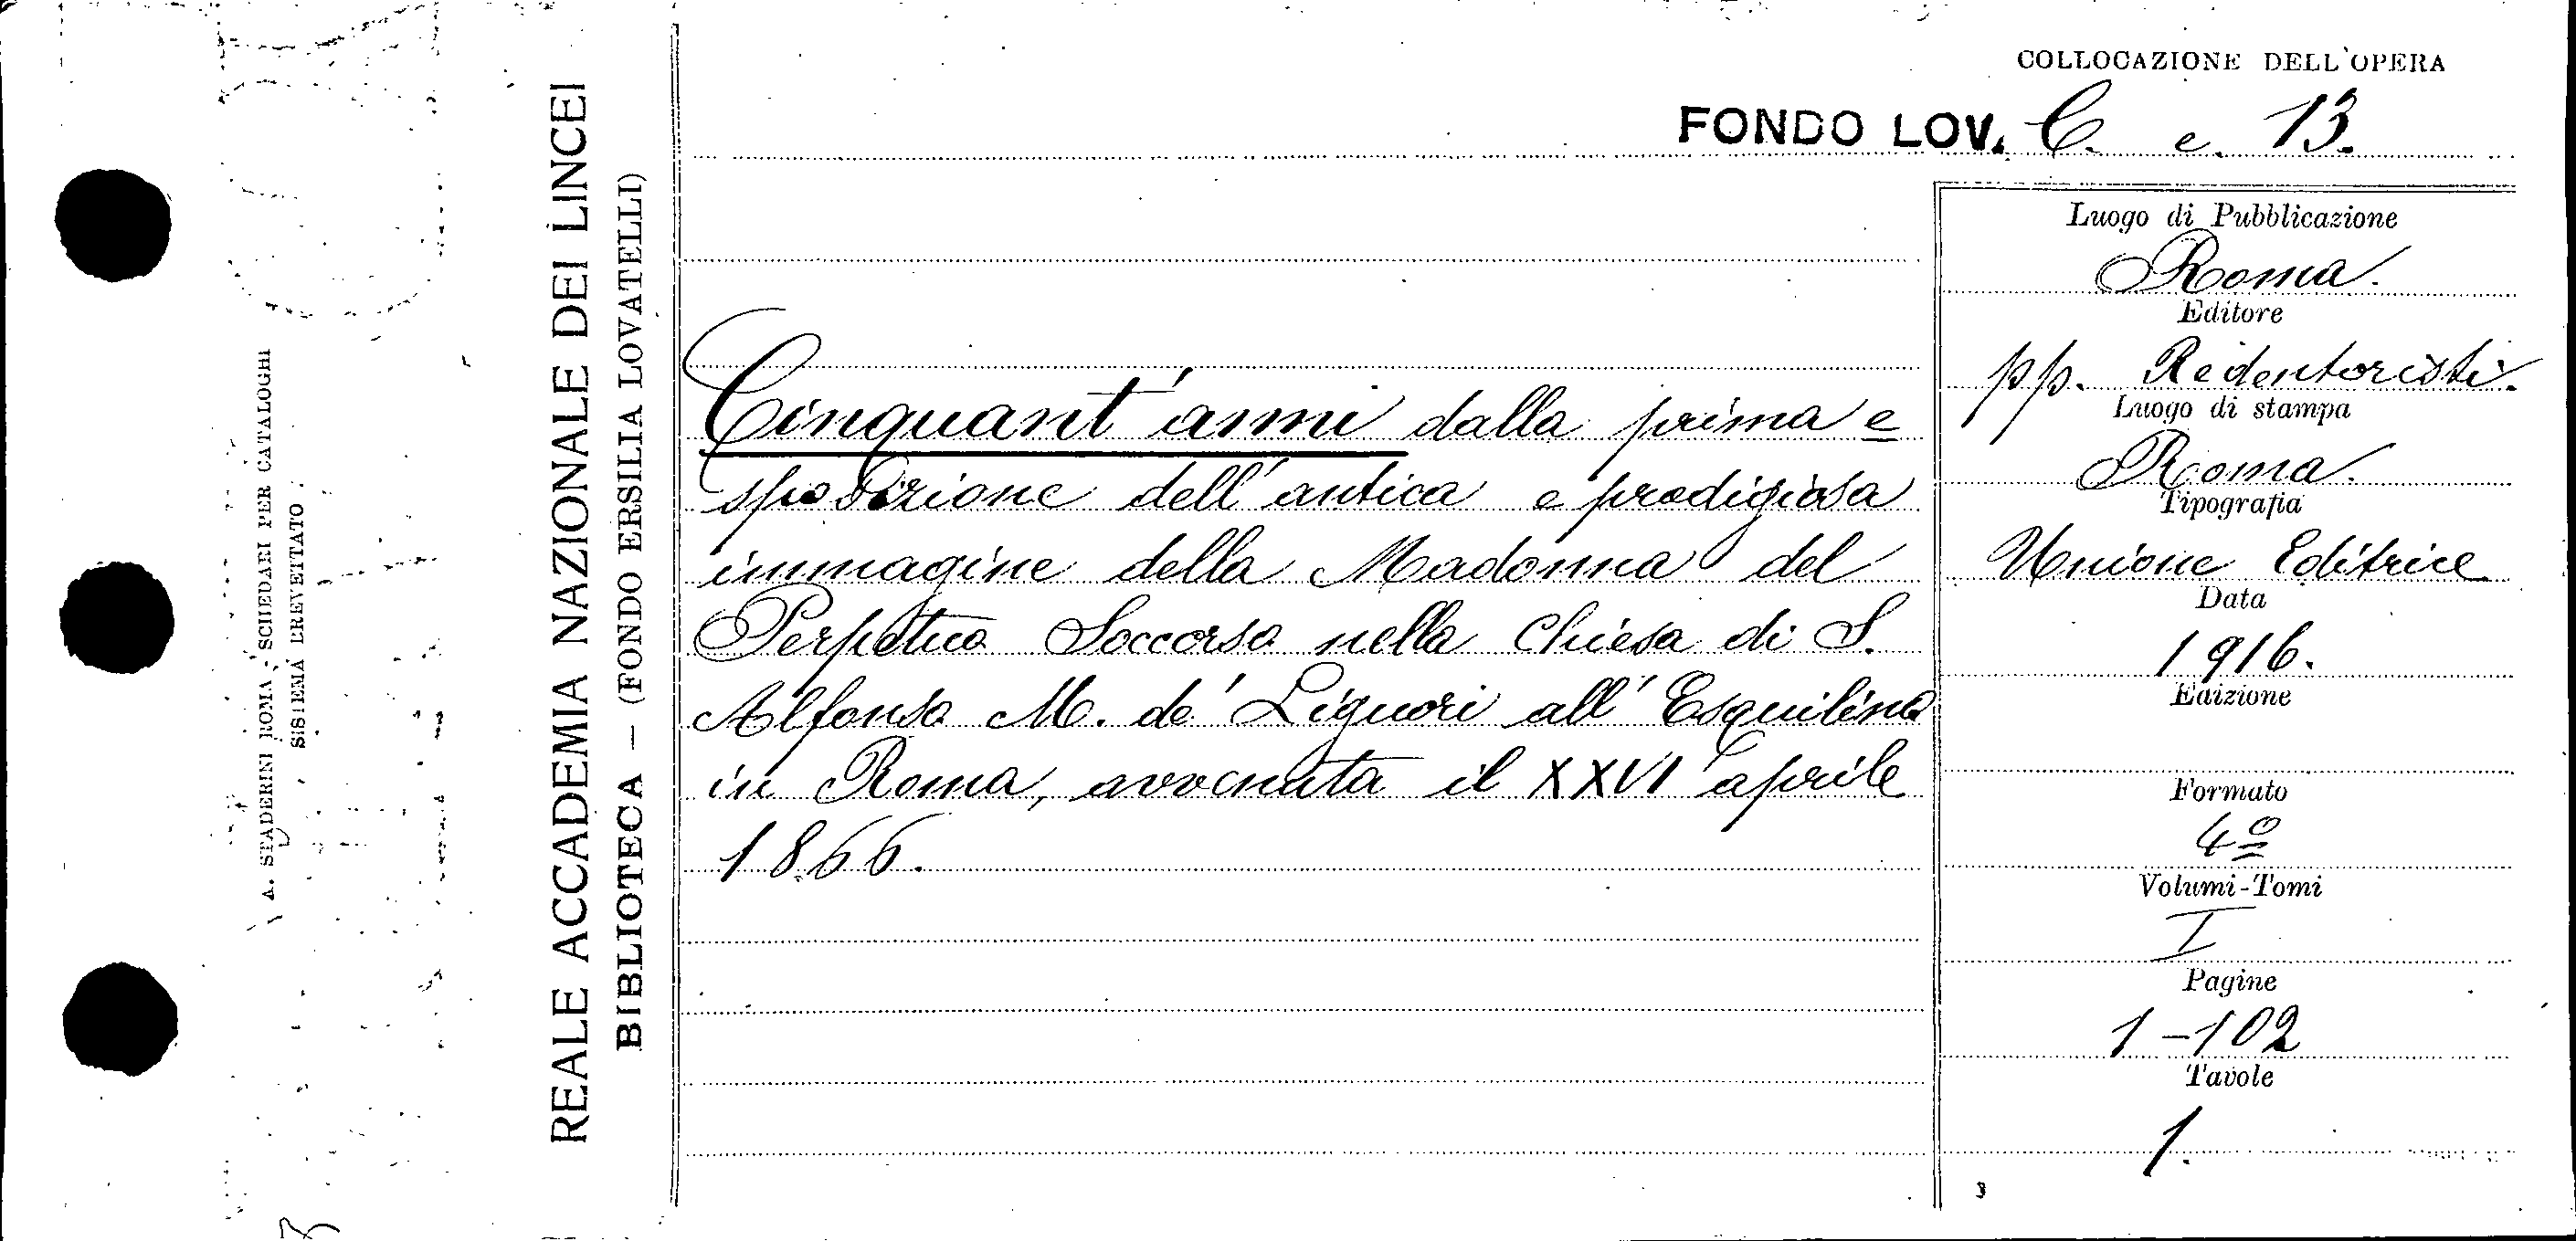 COLLOCAZIONE DELL'OPERA
FONDO LOV. C. e. 13.
A. STADERINI ROMA - SCHEDARI PER CATALOGHI
SISTEMA BREVETTATO
REALE ACCADEMIA NAZIONALE DEI LINCEI
BIBLIOTECA — (FONDO ERSILIA LOVATELLI)
Cinquant'anni dalla prima e
sposizione dell'antica e prodigiosa
immagine della Madonna del
Perpetuo Soccorso nella Chiesa di S.
Alfonso M. de' Liguori all'Esquilino
in Roma, avvenuta il XXVI aprile
1866.
Luogo di Pubblicazione
Roma.
Editore
pp. Redentoristi.
Luogo di stampa
Roma.
Tipografia
Unione Editrice
Data
1916.
Edizione
Formato
4º
Volumi-Tomi
I
Pagine
1-102
Tavole
1.
3